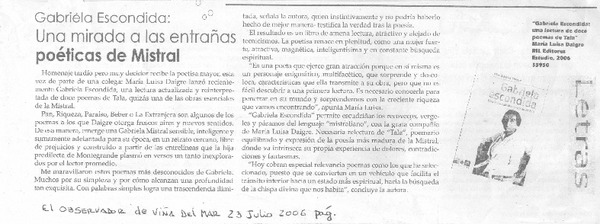 Gabriela Escondida:
Una mirada a las entrañas
poéticas de Mistral
Homenaje tardío pero muy decidor recibe la poetisa mayor, esta
vez de parte de una colega: María Luisa Daigre lanzó reciente-
mente Gabriela Escondida, una lectura actualizada y reinterpre-
tada de doce poemas de Tala, quizás una de las obras esenciales
de la Mistral.
Pan, Riqueza, Paraíso, Beber o La Extranjera son algunos de los
poemas a los que Daigre otorga frases aires y nuevos enclaves.
De esa manera, emerge una Gabriela Mistral sensible, inteligente y
sumamente adelantada para su época, en un retrato cercano, libre
de prejuicios y construido a partir de las entretelas que la hija
predilecta de Montegrande plasmó en versos un tanto inexplora-
dos por el lector promedio.
Me maravillaron estos poemas más desconocidos de Gabriela.
Muchos por su simpleza y por alcanzar aún una profundidad
tan exquisita. Con palabras simples logra una trascendencia ilimi-
tada, señala la autora, quien instintivamente y no podría haberlo
hecho de mejor manera- testifica la verdad tras la poesía.
El resultado es un libro de amena lectura, atractivo y alejado de
tecnicismos. La poetisa renace en plenitud, como una mujer fuer-
te, atractiva, magnética, inteligentísima y en constante búsqueda
espiritual.
"Es una poeta que ejerce gran atracción porque en sí misma es
un personaje enigmático, multifacético, que sorprende y des-
coloca, características que ella transmite a su obra, pero que no es
fácil descubrir a una primera lectura. Es necesario conocerla para
penetrar en su mundo y sorprendernos con la creciente riqueza
que vamos encontrando", apunta María Luisa.
"Gabriela Escondida" permite escudriñar en recovecos, ver-
geles y páramos del lenguaje "mistraliano", con la compañía
de María Luisa Daigre. Necesaria relectura de "Tala", poemario
equilibrado y expresión de la poesía más madura de la Mistral,
donde va intrínseca su propia experiencia de dolores, contradic-
ciones y fantasmas.
"Hoy cobran especial relevancia poemas como los que he selec-
cionado, puesto que se convierten en un vehículo que facilita el
tránsito interior hacia un estado más espiritual, hacia la búsqueda
de la chispa divina que nos habita", concluye la autora.
"Gabriela Escondida:
una lectura de doce
poemas de Tala"
María Luisa Daigre
RIL Editores
Estudio, 2006
$5950
Gabriela
Escondida
Letras
El Observador de Viña del Mar 23 Julio 2006 pág.